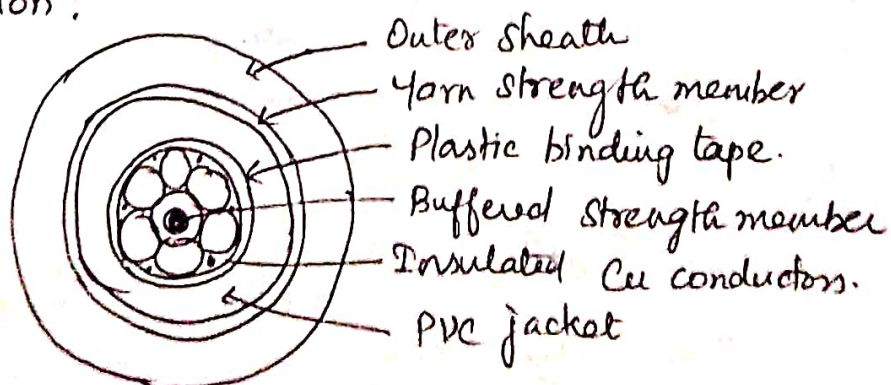 ion :
Outer sheath
Yarn strength member
Plastic binding tape.
Buffered strength member
Insulated Cu conductors.
PVC jacket